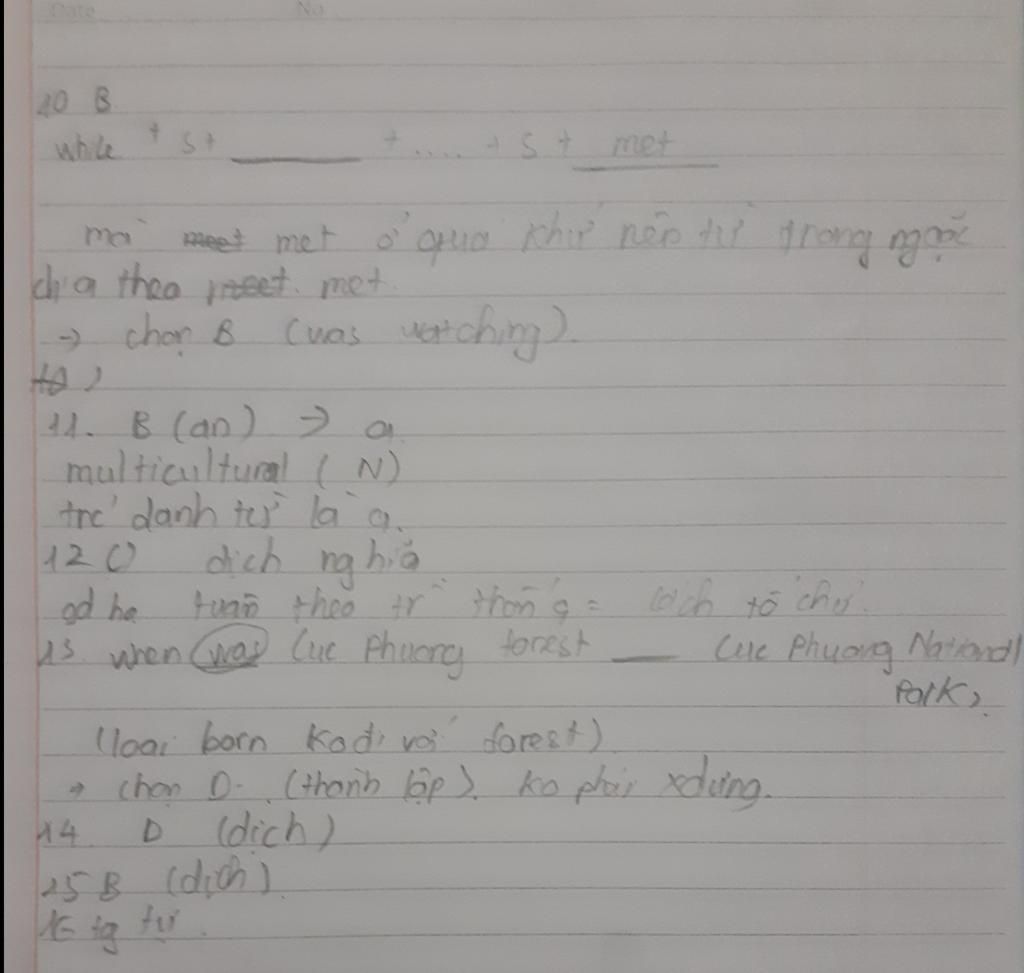 Date No
10 B
while + S + ______ + .... + S + met
mà meet met ở quá khứ nên từ trong ngoặc
chia theo meet. met.
→ chọn B (was watching).
11. B (an) → a
multicultural (N)
trc' danh từ là a.
12 dịch nghĩa
theo =
13 when was Cuc Phuong forest ___ Cuc Phuong National
Park?
(loại born ko đi với forest)
→ chọn D. (thành lập). ko phải xdựng.
14 D (dịch)
15 B (dịch).
16 tg tự.